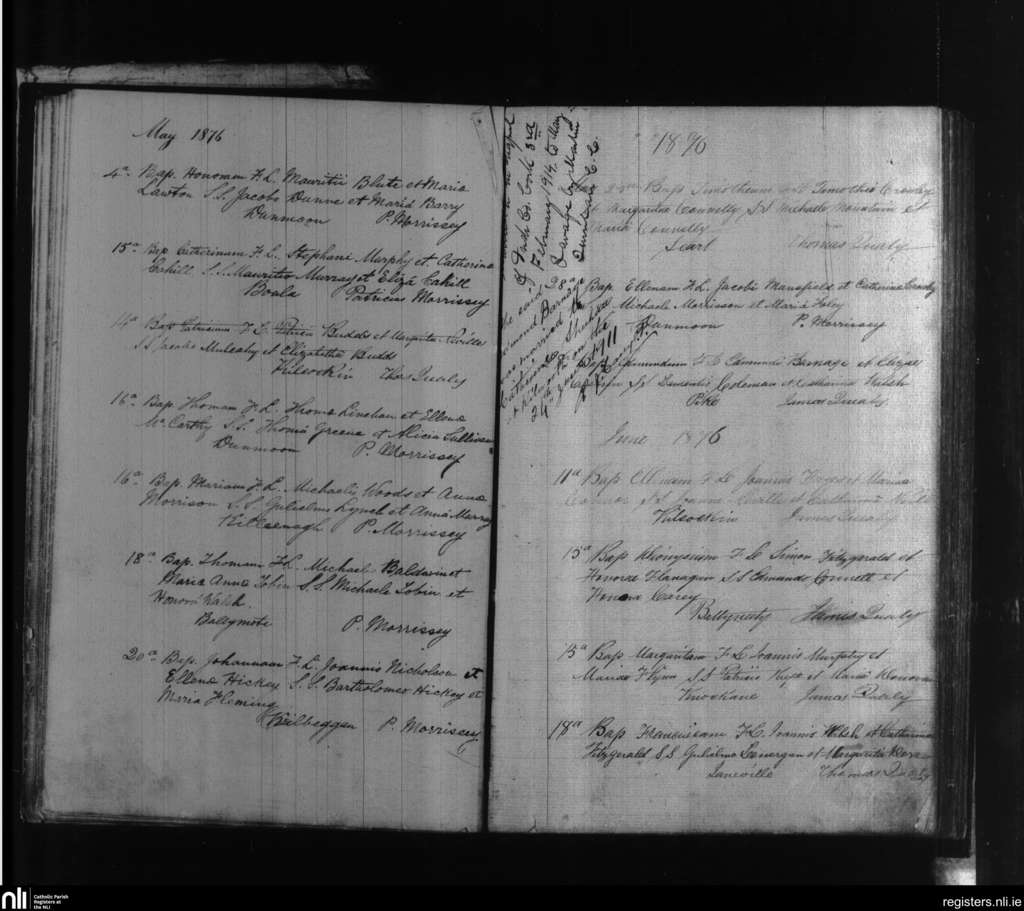 May 1876
4a Bap. Honoram F.L. Mauritii Blute et Maria
Lawton S.S. Jacobo Dunne et Maria Barry
Dunmoon P. Morrissey
15a Bap. Catherinam F.L. Stephani Murphy et Catherina
Cahill S.S. Mauritio Murray et Eliza Cahill
Boula Patricius Morrissey
14a Bap Patricium F L Patricii Budds et Margarita Neville
S S Jacobo Mulcahy et Elizabetha Budds
Kilcockin Thos Quealy
16a Bap. Thomam F.L. Thoma Linehan et Ellena
McCarthy S.S. Thoma Greene et Alicia Sullivan
Dunmoon P. Morrissey
16a Bap. Mariam F.L. Michaelis Woods et Anna
Morrison S.S. Gulielmo Lynch et Anna Murray
P. Morrissey
18a Bap. Thomam F.L. Michael Baldwin et
Maria Anna Tobin S.S. Michaele Tobin et
Honora Walsh.
Ballymote P. Morrissey
20a Bap. Johannam F.L. Joannis Nicholson et
Ellena Hickey S.S. Bartholomeo Hickey et
Maria Fleming
Kilbeggan P. Morrissey
1876
Bap Timotheum F L Timothei Crowley
et Margarita Connelly S S Michaele Mountain et
Maria Connelly
Scart Thomas Quealy
28a Bap. Ellenam F.L. Jacobi Mansfield et Catherina
Michaele Morrisson et Maria Foley
Dunmoon P. Morrissey
Bap Edmundum F L Edmundi Barnage et Elizae
S S Laurentio Coleman et Catharina Walsh
Pike James Quealy
the said
Edmund Barnage
was married to
Catherine
on the
24th June 1911
of Youth Co. Cork 3rd
February 1914. to Mary
Savage by Martin
C.C.
June 1876
11a Bap Ellenam F L Joannis Hayes et Mariae
S S Joanne Neville et Catharina
Kilcockin James Quealy
15a Bap Dionysium F L Simon Fitzgerald et
Honorae Flanagan S S Edmundo Connell et
Honora Carey
James Quealy
15a Bap Margaritam F L Joannis Murphy et
Mariae Flynn S S Patricio et Maria Donovan
Knockane James Quealy
18a Bap Franciscam F L Joannis Walsh et Catharina
Fitzgerald S S Gulielmo Lonergan et Margarita
Janeville Thomas Quealy
nli
Catholic Parish
Registers at
the NLI
registers.nli.ie